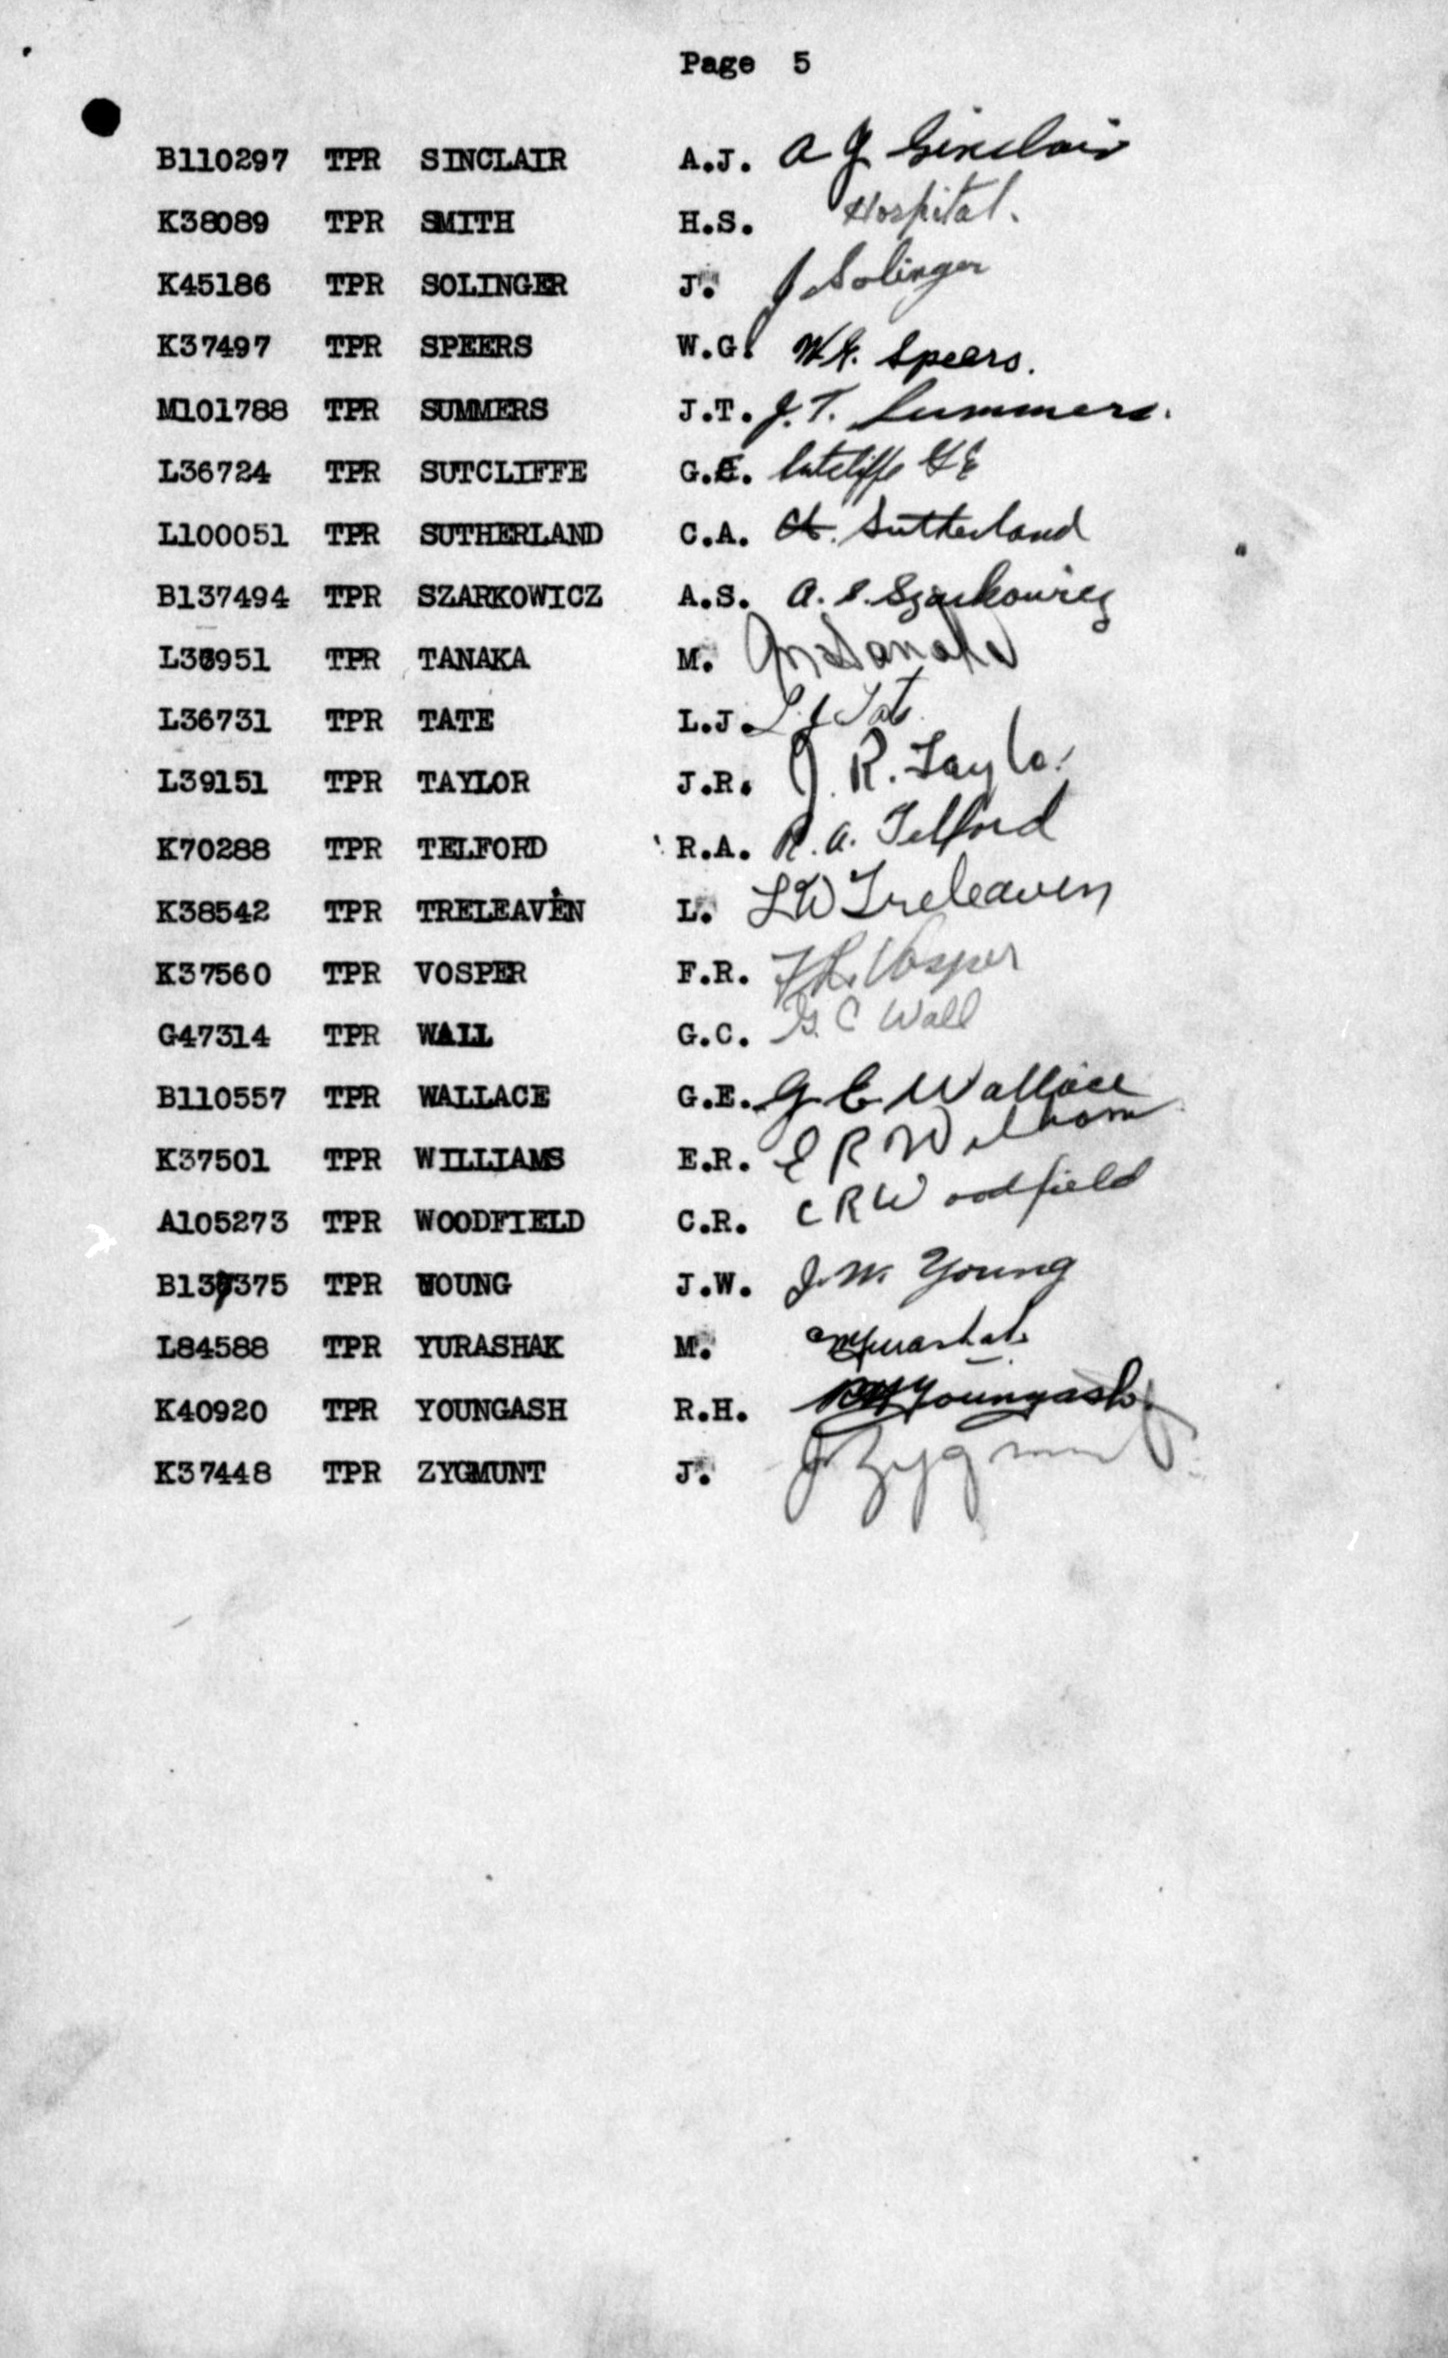 Page 5
B110297 TPR SINCLAIR A.J. A J Sinclair
K38089 TPR SMITH H.S. Hospital.
K45186 TPR SOLINGER J. J Solinger
K37497 TPR SPEERS W.G. W.G. Speers.
M101788 TPR SUMMERS J.T. J.T. Summers.
L36724 TPR SUTCLIFFE G.E. Sutcliffe G E
L100051 TPR SUTHERLAND C.A. CA. Sutherland
B137494 TPR SZARKOWICZ A.S. A. S. Szarkowicz
TPR TANAKA M. M Tanaka
L36731 TPR TATE L.J. L. J Tate
L39151 TPR TAYLOR J.R. J. R. Taylor
K70288 TPR TELFORD R.A. R. A. Telford
K38542 TPR TRELEAVEN L. L W Treleaven
K37560 TPR VOSPER F.R. F R. Vosper
G47314 TPR WALL G.C. G. C Wall
B110557 TPR WALLACE G.E. G E Wallace
K37501 TPR WILLIAMS E.R. E R Williams
A105273 TPR WOODFIELD C.R. C R Woodfield
B137375 TPR YOUNG J.W. J. W. Young
L84588 TPR YURASHAK M. M Yurashak
K40920 TPR YOUNGASH R.H. RH Youngash
K37448 TPR ZYGMUNT J. J Zygmunt